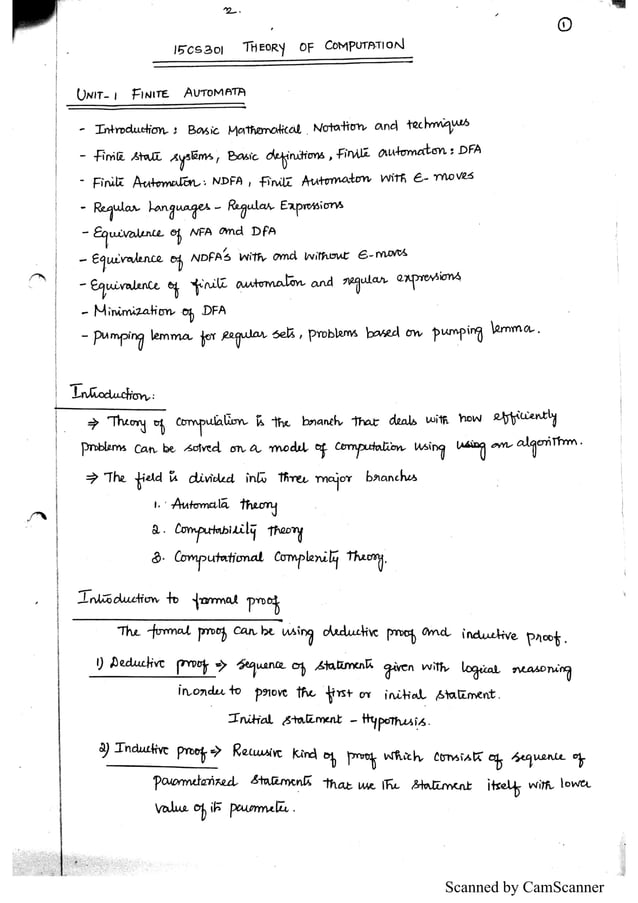 2.
1
15CS301 THEORY OF COMPUTATION
UNIT-1 FINITE AUTOMATA
- Introduction: Basic Mathematical Notation and techniques
- Finite state systems, Basic definitions, Finite automaton: DFA
- Finite Automaton: NDFA, Finite Automaton with ε-moves
- Regular Languages - Regular Expressions
- Equivalence of NFA and DFA
- Equivalence of NDFA's with and without ε-moves
- Equivalence of finite automaton and regular expressions
- Minimization of DFA
- Pumping lemma for Regular sets, problems based on pumping lemma.
Introduction:
⇒ Theory of computation is the branch that deals with how efficiently
problems can be solved on a model of computation using using an algorithm.
⇒ The field is divided into three major branches
1. Automata theory
2. Computability theory
3. Computational Complexity Theory.
Introduction to formal proof
The formal proof can be using deductive proof and inductive proof.
1) Deductive proof ⇒ Sequence of statements given with logical reasoning
inorder to prove the first or initial statement.
Initial statement - Hypothesis.
2) Inductive proof ⇒ Recursive kind of proof which consists of sequence of
parameterized statements that use the statement itself with lower
value of its parameter.
Scanned by CamScanner